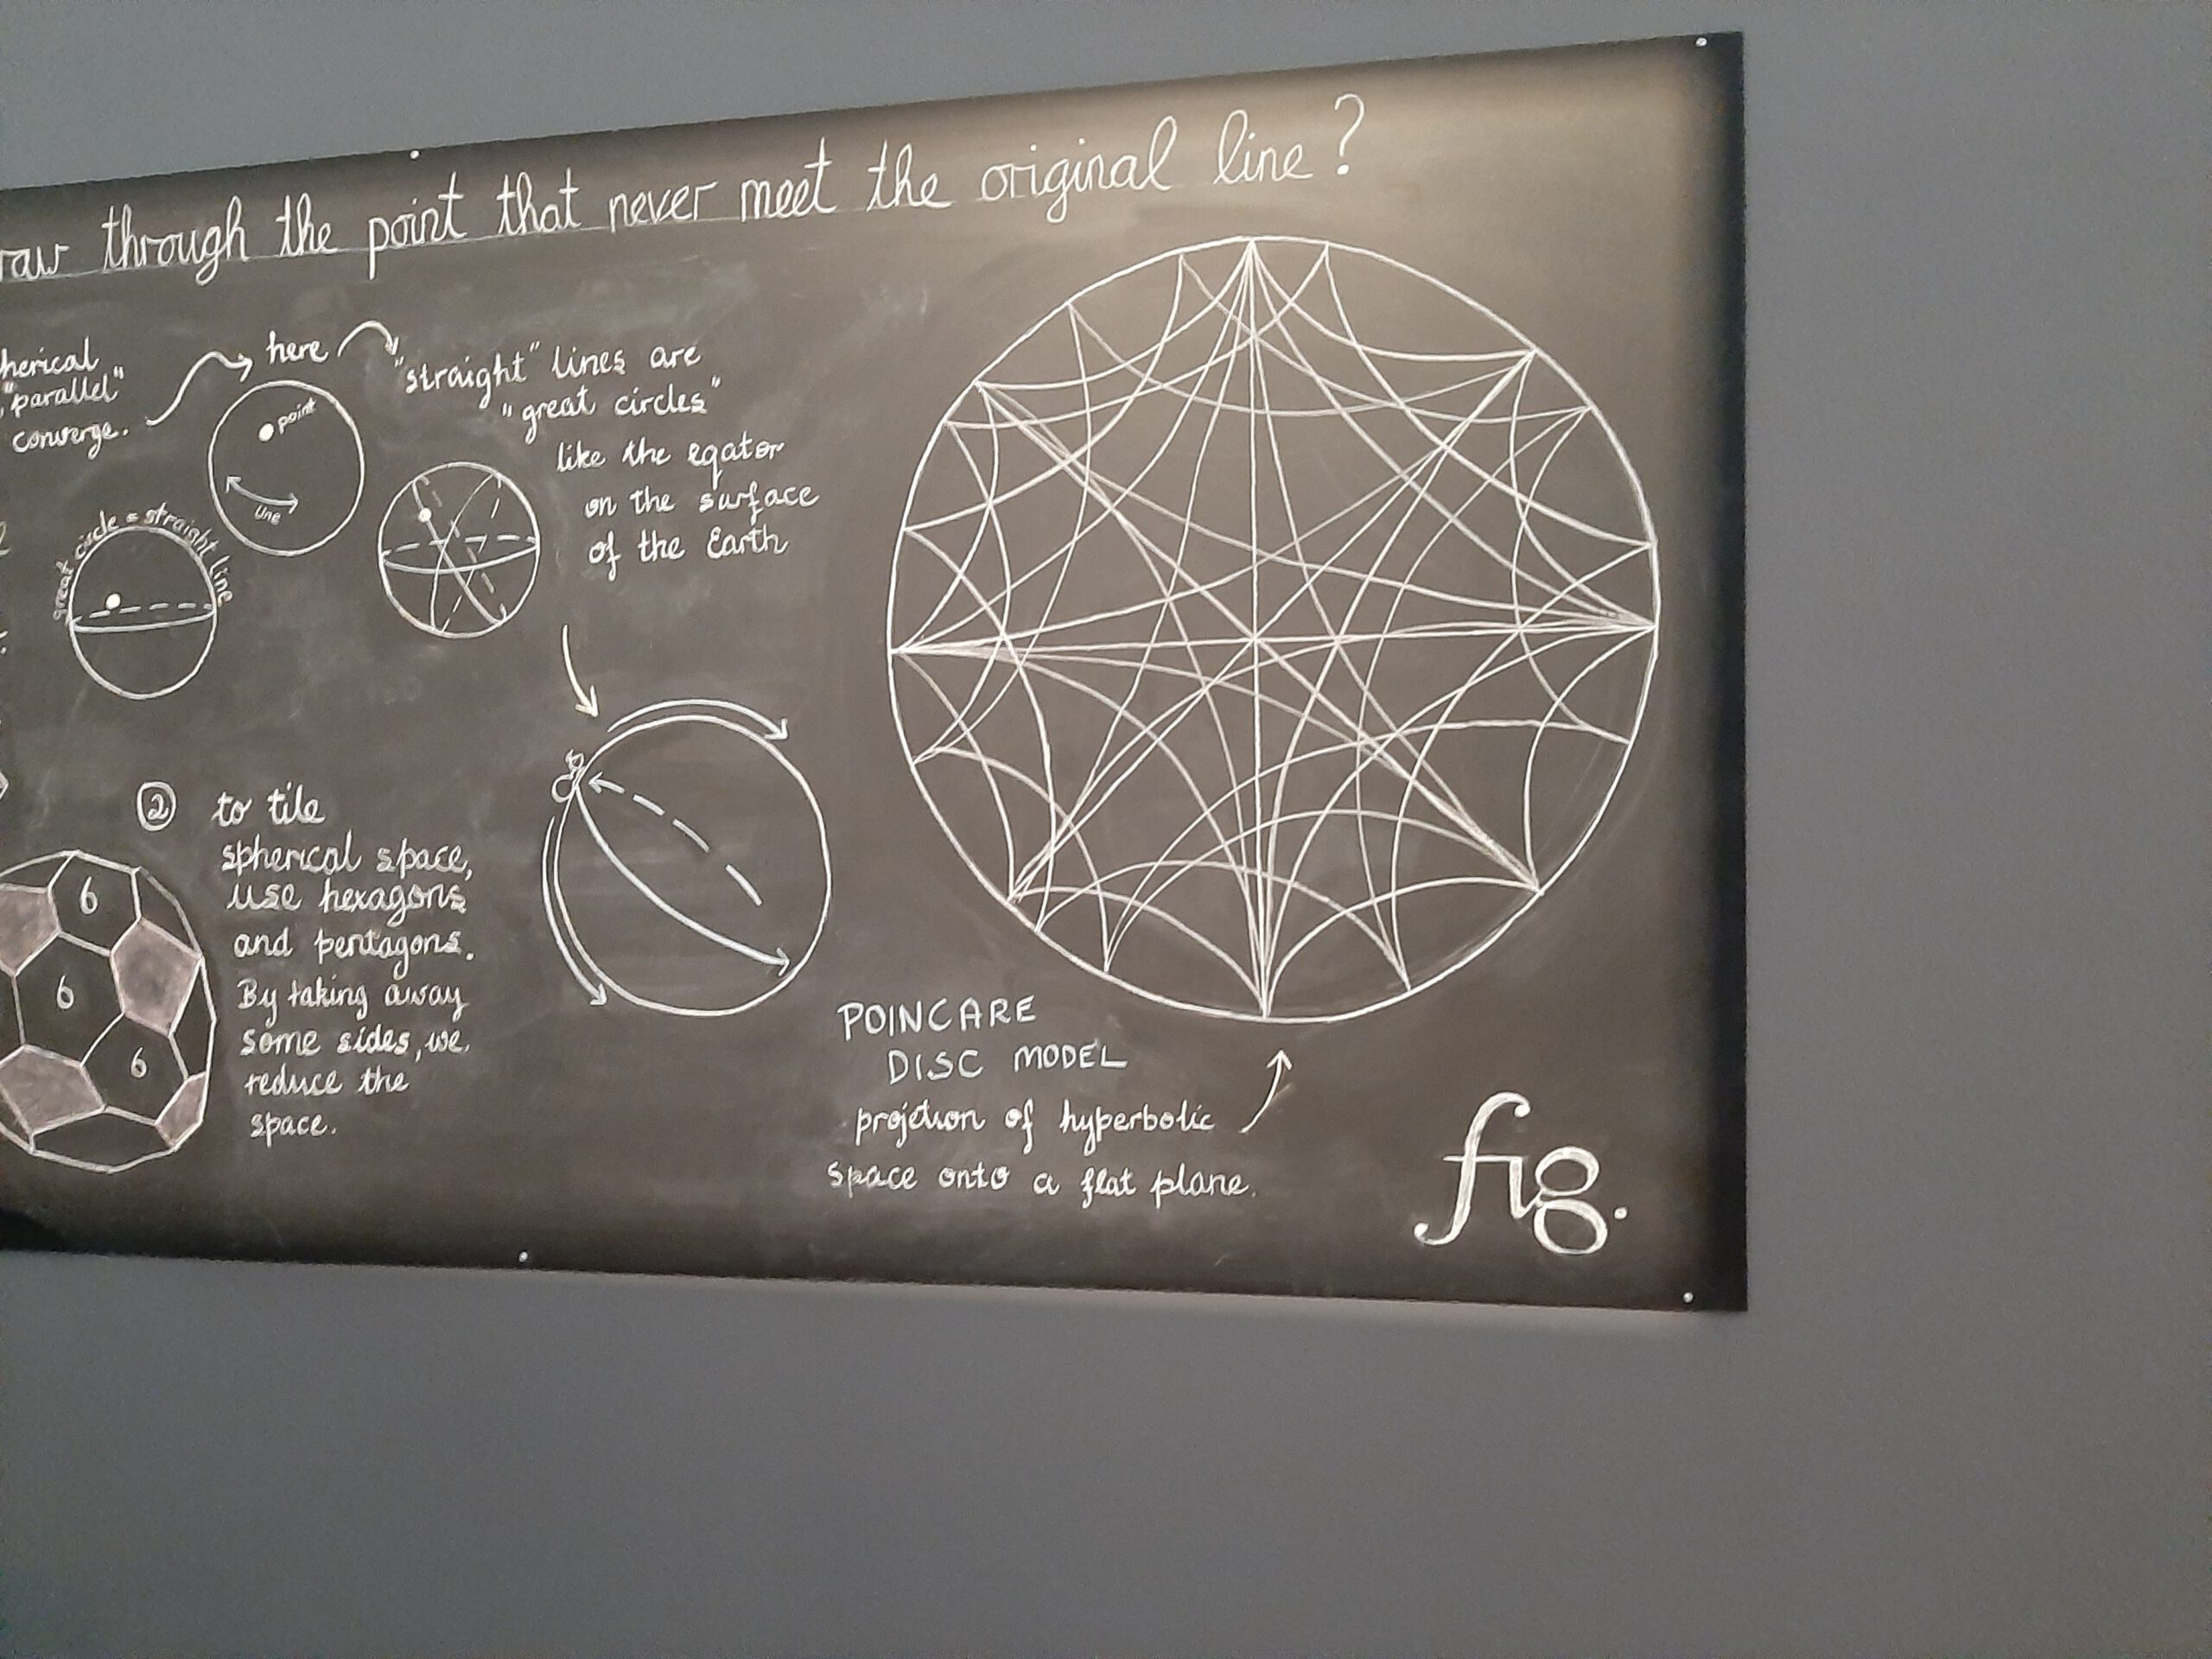 through the point that never meet the original line?
"parallel"
converge.
here
point
line
"straight" lines are
"great circles"
like the eqator
on the surface
of the Earth
great circle = straight line
② to tile
spherical space,
use hexagons
and pentagons.
By taking away
some sides, we
reduce the
space.
6
6
6
POINCARE
DISC MODEL
projetion of hyperbolic
space onto a flat plane.
fig.